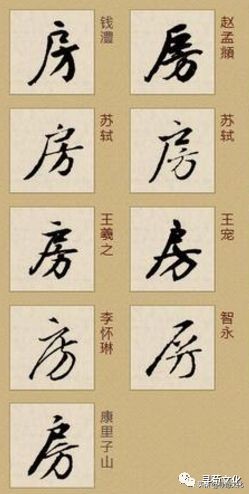 房 钱澧
房 赵孟頫
房 苏轼
房 苏轼
房 王羲之
房 王宠
房 李怀琳
房 智永
房 康里子山
寻新文化